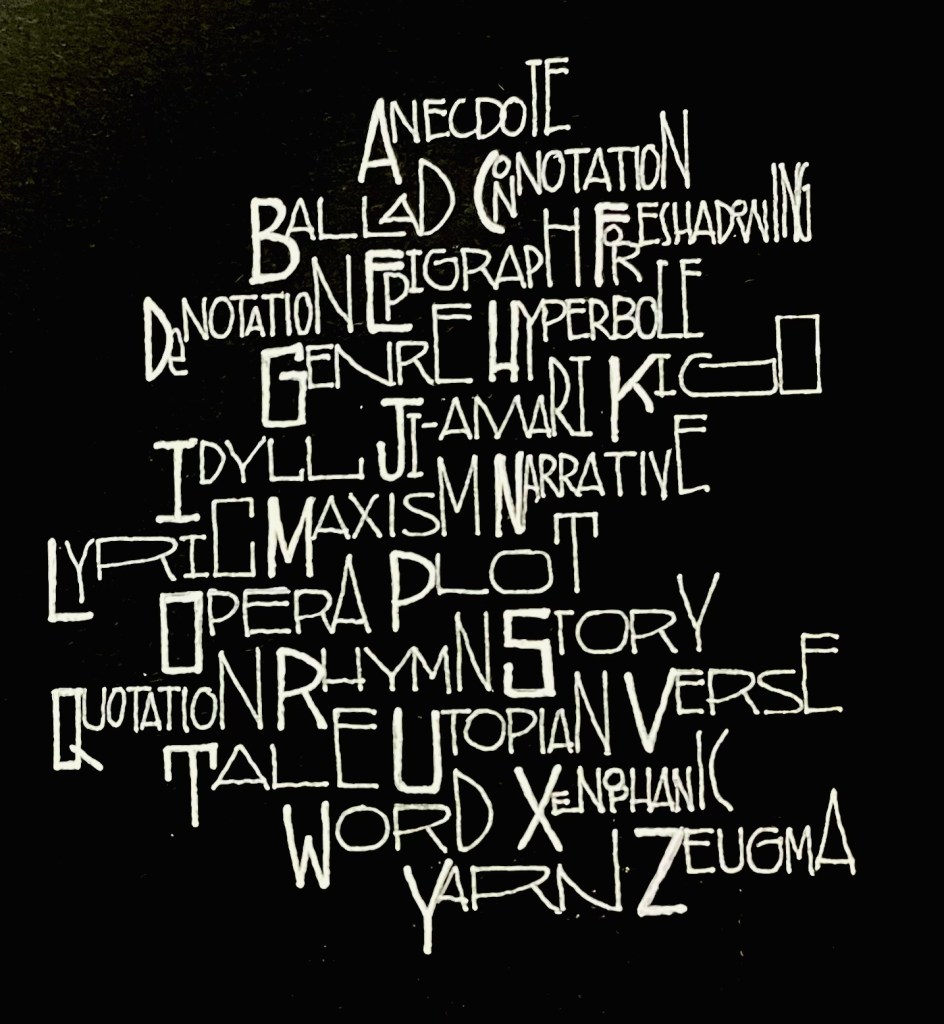 ANECDOTE
BALLAD CONNOTATION
DeNOTATION EPIGRAPH FORESHADOWING
GENRE HYPERBOLE
IDYLL JI-AMARI KIGO
LYRIC MAXISM NARRATIVE
OPERA PLOT
QUOTATION RHYMN STORY
TALE UTOPIAN VERSE
WORD XENOPHANIC
YARN ZEUGMA